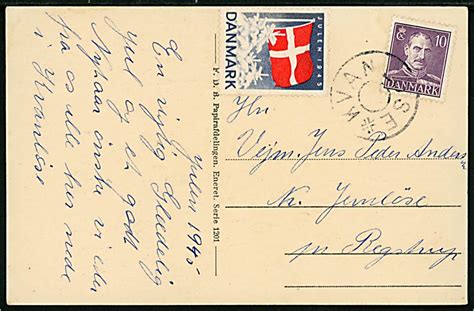 Julen 1945
En rigtig Glædelig
Jul og et godt
Nytaar ønske vi eder
fra os alle her nede
i Kvanløse
F. D. B. Papirafdelingen. Eneret. Serie 1201
JULEN 1945
DANMARK
10
DANMARK
KVANLØSE
Hr.
Vejm. Jens Peder Anders
Nr. Jernløse
pr Regstrup